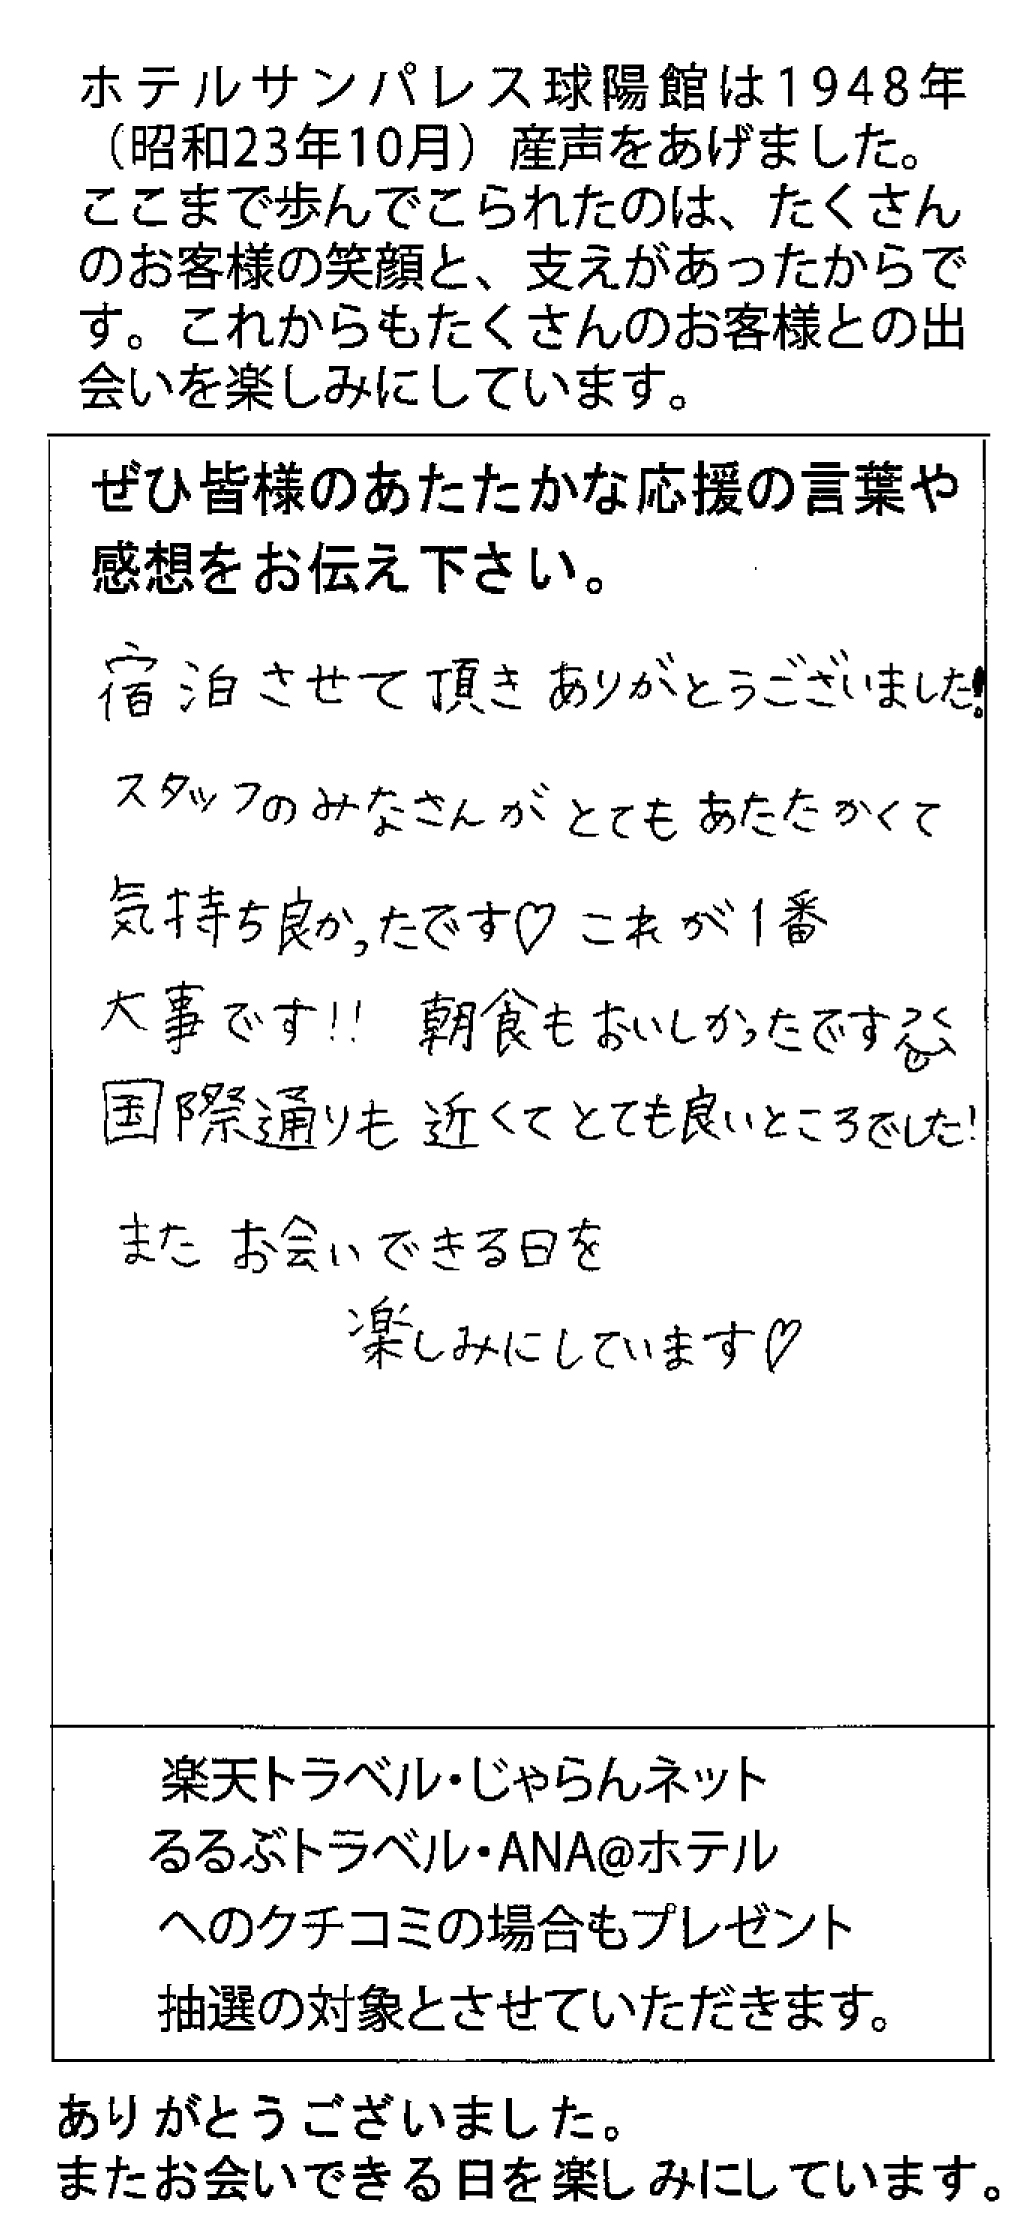 ホテルサンパレス球陽館は1948年
（昭和23年10月）産声をあげました。
ここまで歩んでこられたのは、たくさん
のお客様の笑顔と、支えがあったからで
す。これからもたくさんのお客様との出
会いを楽しみにしています。
ぜひ皆様のあたたかな応援の言葉や
感想をお伝え下さい。
宿泊させて頂きありがとうございました!
スタッフのみなさんがとてもあたたかくて
気持ち良かったです♡ これが1番
大事です!! 朝食もおいしかったです
国際通りも近くてとても良いところでした!
またお会いできる日を
楽しみにしています♡
楽天トラベル・じゃらんネット
るるぶトラベル・ANA@ホテル
へのクチコミの場合もプレゼント
抽選の対象とさせていただきます。
ありがとうございました。
またお会いできる日を楽しみにしています。